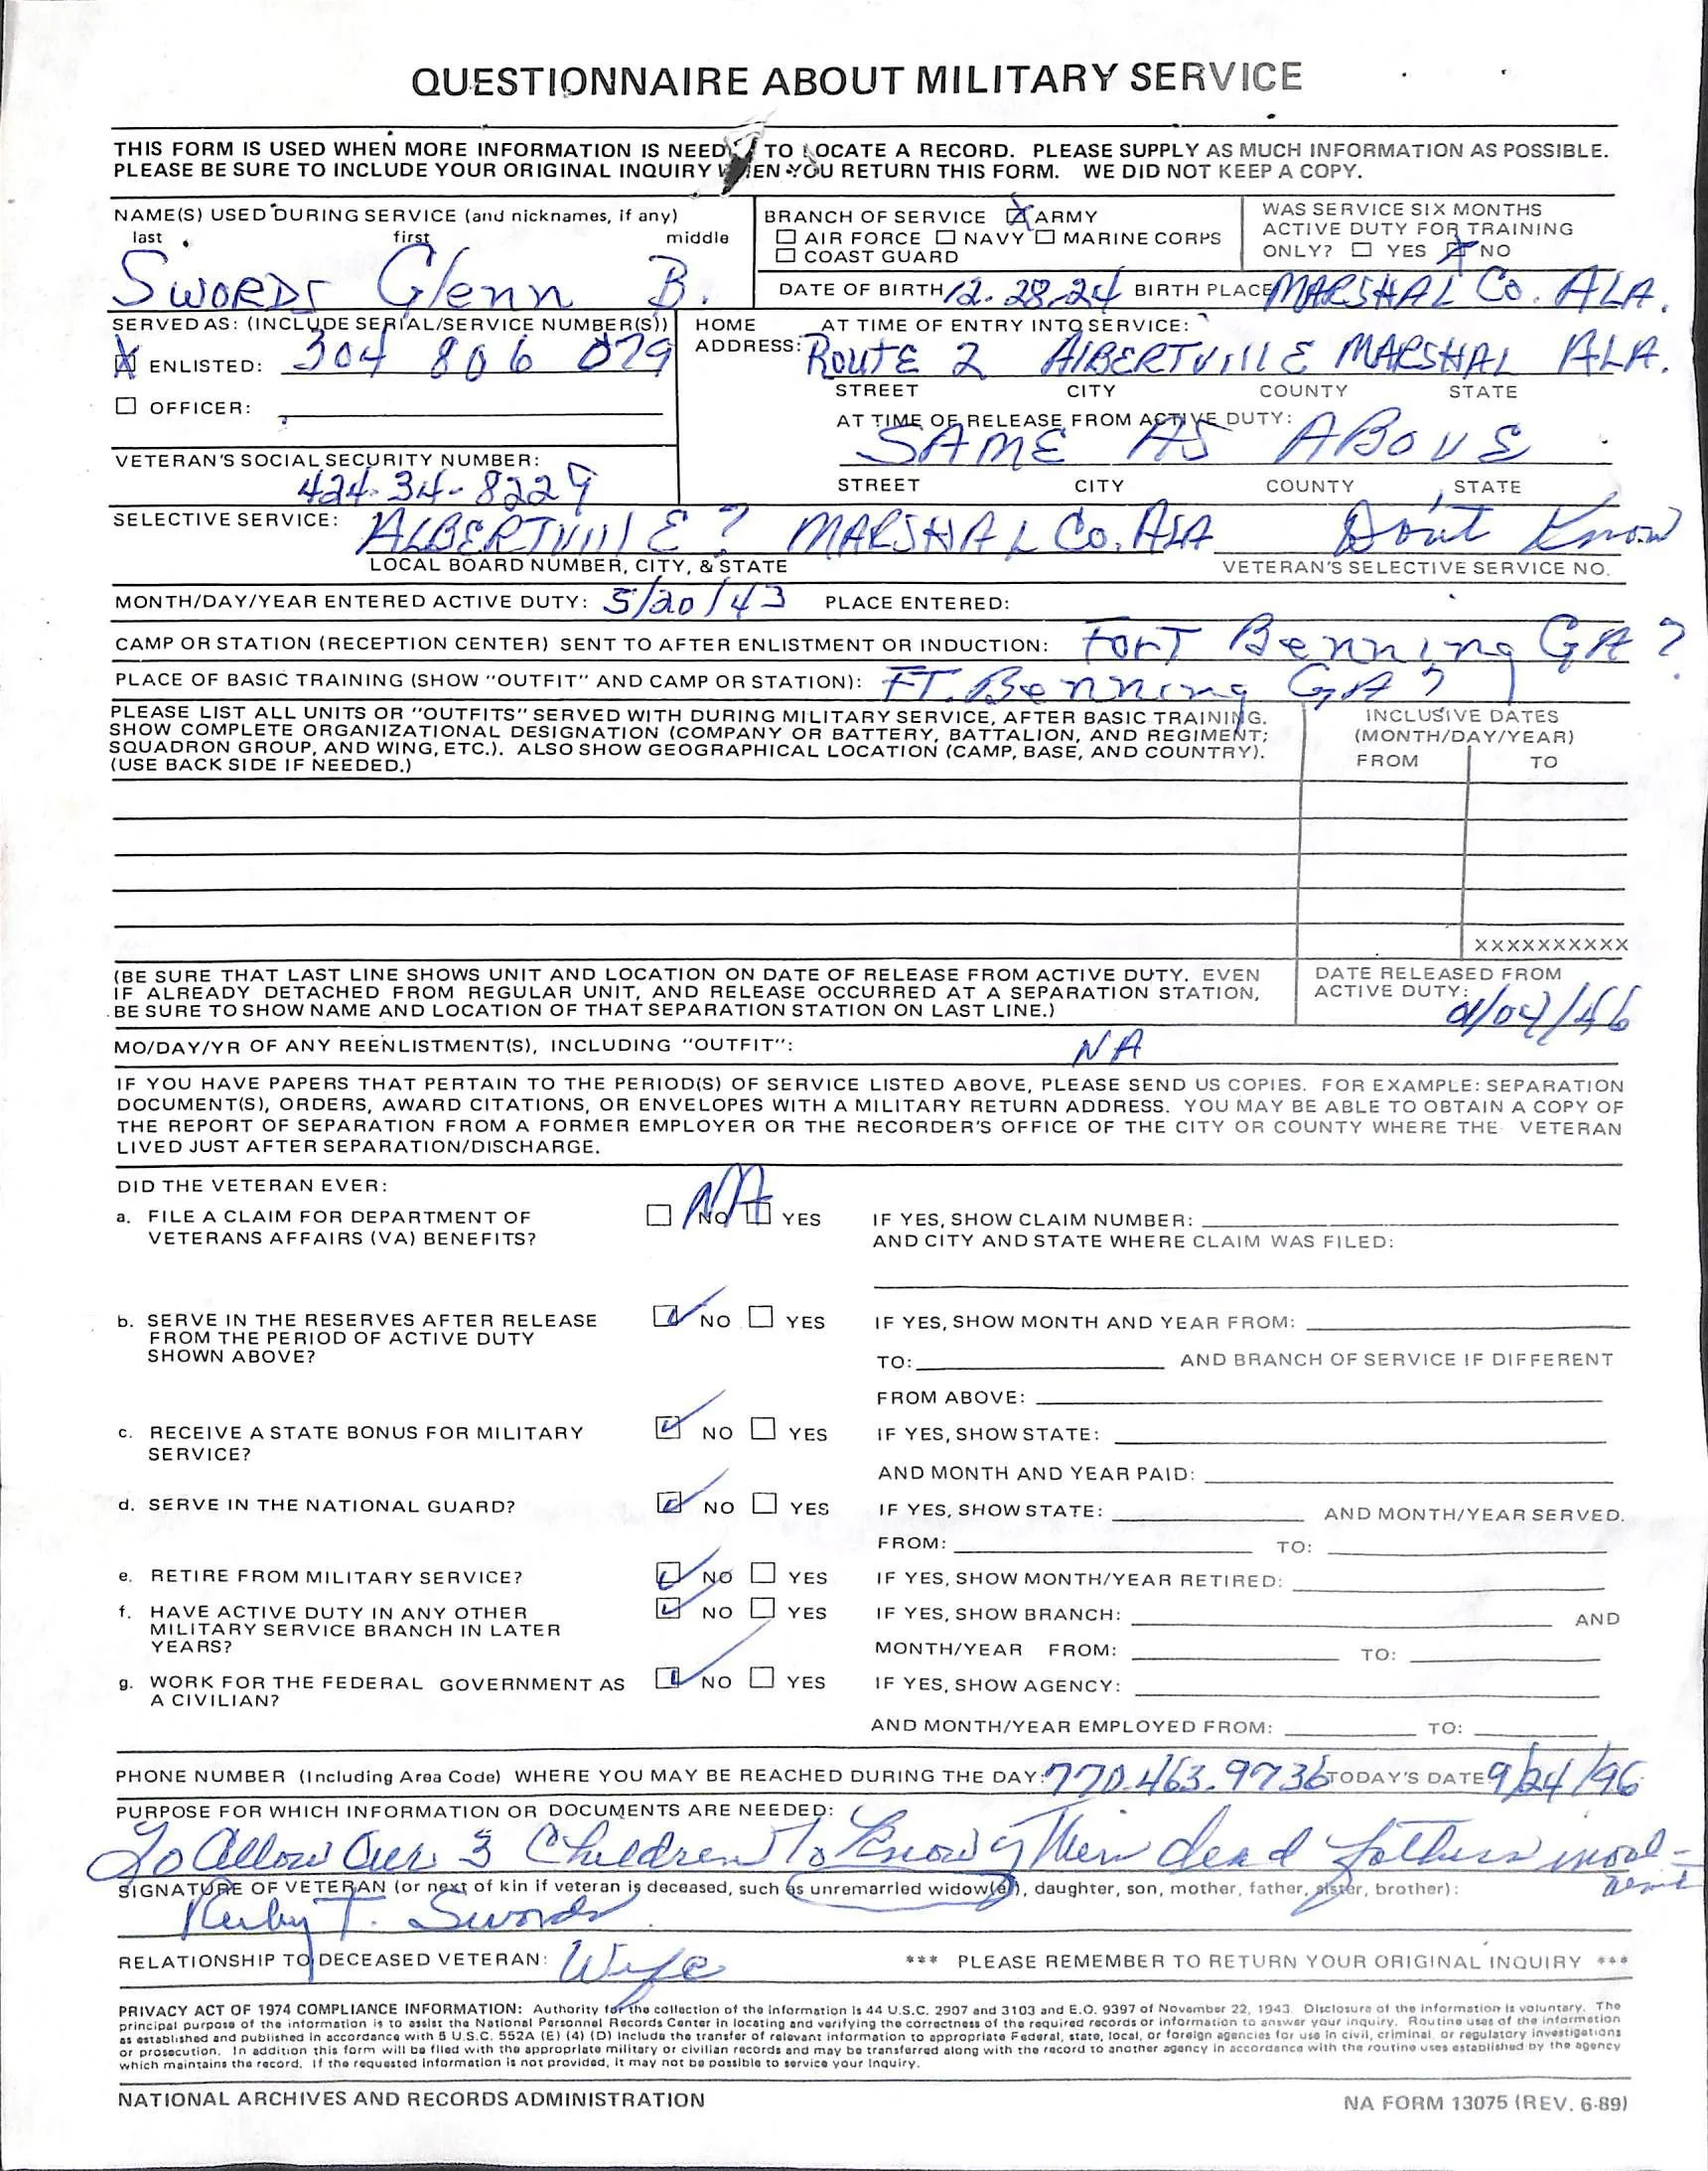 QUESTIONNAIRE ABOUT MILITARY SERVICE
THIS FORM IS USED WHEN MORE INFORMATION IS NEED TO LOCATE A RECORD. PLEASE SUPPLY AS MUCH INFORMATION AS POSSIBLE.
PLEASE BE SURE TO INCLUDE YOUR ORIGINAL INQUIRY WHEN YOU RETURN THIS FORM. WE DID NOT KEEP A COPY.
NAME(S) USED DURING SERVICE (and nicknames, if any)
last first middle
Swords Glenn B.
BRANCH OF SERVICE ☒ ARMY
☐ AIR FORCE ☐ NAVY ☐ MARINE CORPS
☐ COAST GUARD
WAS SERVICE SIX MONTHS
ACTIVE DUTY FOR TRAINING
ONLY? ☐ YES ☒ NO
DATE OF BIRTH 12.28.24 BIRTH PLACE MARSHAL Co. ALA.
SERVED AS: (INCLUDE SERIAL/SERVICE NUMBER(S))
☒ ENLISTED: 304 806 079
☐ OFFICER:
HOME ADDRESS: AT TIME OF ENTRY INTO SERVICE:
Route 2 AlBERTVIllE MARSHAL ALA.
STREET CITY COUNTY STATE
AT TIME OF RELEASE FROM ACTIVE DUTY:
SAME AS ABOVE
STREET CITY COUNTY STATE
VETERAN'S SOCIAL SECURITY NUMBER:
424-34-8229
SELECTIVE SERVICE: ALBERTVIllE? MARSHAL Co. ALA Don't Know
LOCAL BOARD NUMBER, CITY, & STATE VETERAN'S SELECTIVE SERVICE NO.
MONTH/DAY/YEAR ENTERED ACTIVE DUTY: 5/20/43 PLACE ENTERED:
CAMP OR STATION (RECEPTION CENTER) SENT TO AFTER ENLISTMENT OR INDUCTION: FORT Benning GA?
PLACE OF BASIC TRAINING (SHOW "OUTFIT" AND CAMP OR STATION): FT. Benning GA?
PLEASE LIST ALL UNITS OR "OUTFITS" SERVED WITH DURING MILITARY SERVICE, AFTER BASIC TRAINING.
SHOW COMPLETE ORGANIZATIONAL DESIGNATION (COMPANY OR BATTERY, BATTALION, AND REGIMENT;
SQUADRON GROUP, AND WING, ETC.). ALSO SHOW GEOGRAPHICAL LOCATION (CAMP, BASE, AND COUNTRY).
(USE BACK SIDE IF NEEDED.)
INCLUSIVE DATES
(MONTH/DAY/YEAR)
FROM TO
XXXXXXXXXX
(BE SURE THAT LAST LINE SHOWS UNIT AND LOCATION ON DATE OF RELEASE FROM ACTIVE DUTY. EVEN
IF ALREADY DETACHED FROM REGULAR UNIT, AND RELEASE OCCURRED AT A SEPARATION STATION,
BE SURE TO SHOW NAME AND LOCATION OF THAT SEPARATION STATION ON LAST LINE.)
DATE RELEASED FROM
ACTIVE DUTY:
MO/DAY/YR OF ANY REENLISTMENT(S), INCLUDING "OUTFIT": NA
IF YOU HAVE PAPERS THAT PERTAIN TO THE PERIOD(S) OF SERVICE LISTED ABOVE, PLEASE SEND US COPIES. FOR EXAMPLE: SEPARATION
DOCUMENT(S), ORDERS, AWARD CITATIONS, OR ENVELOPES WITH A MILITARY RETURN ADDRESS. YOU MAY BE ABLE TO OBTAIN A COPY OF
THE REPORT OF SEPARATION FROM A FORMER EMPLOYER OR THE RECORDER'S OFFICE OF THE CITY OR COUNTY WHERE THE VETERAN
LIVED JUST AFTER SEPARATION/DISCHARGE.
DID THE VETERAN EVER:
a. FILE A CLAIM FOR DEPARTMENT OF
VETERANS AFFAIRS (VA) BENEFITS?
☐ NO ☐ YES NA
IF YES, SHOW CLAIM NUMBER:
AND CITY AND STATE WHERE CLAIM WAS FILED:
b. SERVE IN THE RESERVES AFTER RELEASE
FROM THE PERIOD OF ACTIVE DUTY
SHOWN ABOVE?
☑ NO ☐ YES
IF YES, SHOW MONTH AND YEAR FROM:
TO: AND BRANCH OF SERVICE IF DIFFERENT
FROM ABOVE:
c. RECEIVE A STATE BONUS FOR MILITARY
SERVICE?
☑ NO ☐ YES
IF YES, SHOW STATE:
AND MONTH AND YEAR PAID:
d. SERVE IN THE NATIONAL GUARD? ☑ NO ☐ YES IF YES, SHOW STATE: AND MONTH/YEAR SERVED.
FROM: TO:
e. RETIRE FROM MILITARY SERVICE? ☑ NO ☐ YES IF YES, SHOW MONTH/YEAR RETIRED:
f. HAVE ACTIVE DUTY IN ANY OTHER
MILITARY SERVICE BRANCH IN LATER
YEARS?
☑ NO ☐ YES
IF YES, SHOW BRANCH: AND
MONTH/YEAR FROM: TO:
g. WORK FOR THE FEDERAL GOVERNMENT AS
A CIVILIAN?
☑ NO ☐ YES
IF YES, SHOW AGENCY:
AND MONTH/YEAR EMPLOYED FROM: TO:
PHONE NUMBER (Including Area Code) WHERE YOU MAY BE REACHED DURING THE DAY: 770.463.9736 TODAY'S DATE 9/24/96
PURPOSE FOR WHICH INFORMATION OR DOCUMENTS ARE NEEDED:
To Allow Our 3 Children To Know of Their dead fathers
SIGNATURE OF VETERAN (or next of kin if veteran is deceased, such as unremarried widow(er), daughter, son, mother, father, sister, brother):
Ruby T. Swords
RELATIONSHIP TO DECEASED VETERAN: Wife
*** PLEASE REMEMBER TO RETURN YOUR ORIGINAL INQUIRY ***
PRIVACY ACT OF 1974 COMPLIANCE INFORMATION: Authority for the collection of the information is 44 U.S.C. 2907 and 3103 and E.O. 9397 of November 22, 1943. Disclosure of the information is voluntary. The
principal purpose of the information is to assist the National Personnel Records Center in locating and verifying the correctness of the required records or information to answer your inquiry. Routine uses of the information
as established and published in accordance with 5 U.S.C. 552A (E) (4) (D) include the transfer of relevant information to appropriate Federal, state, local, or foreign agencies for use in civil, criminal, or regulatory investigations
or prosecution. In addition this form will be filed with the appropriate military or civilian records and may be transferred along with the record to another agency in accordance with the routine uses established by the agency
which maintains the record. If the requested information is not provided, it may not be possible to service your inquiry.
NATIONAL ARCHIVES AND RECORDS ADMINISTRATION
NA FORM 13075 (REV. 6-89)